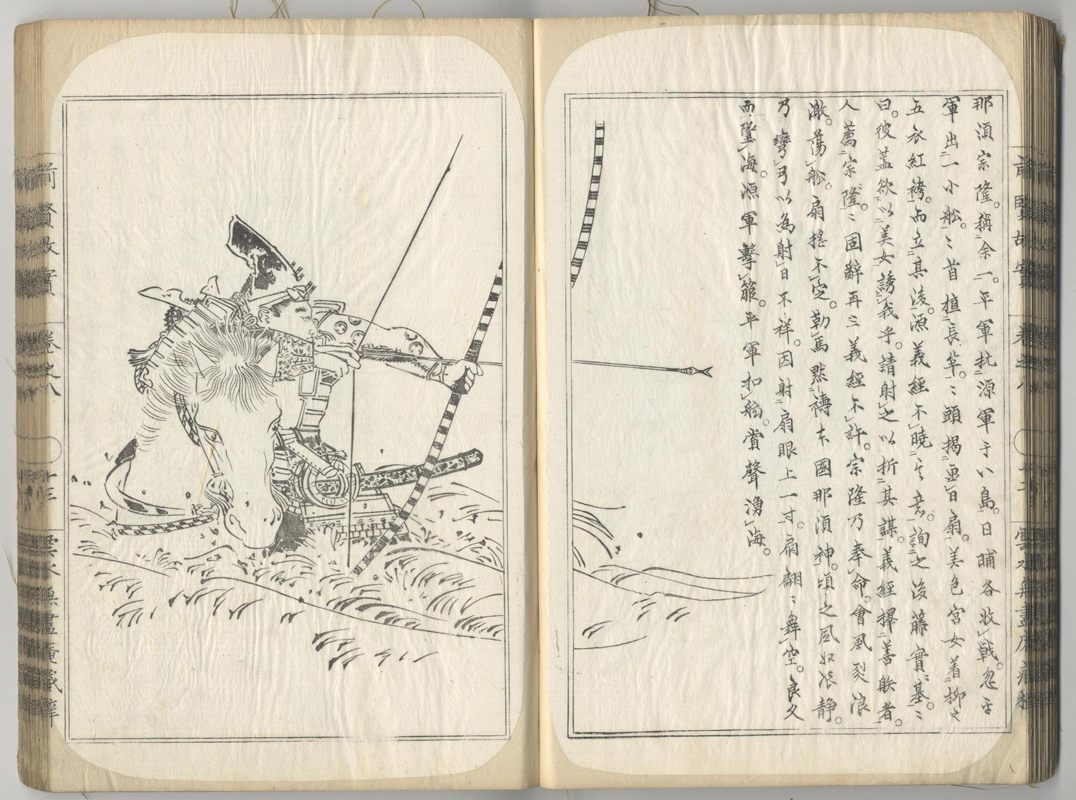 那須宗隆。稱余一。平軍抗源軍于八島。日晡各收戰。忽平
軍出一小舩。〻首植長竿。〻頭揭画日扇。美色宮女着柳之
五衣紅袴。而立其後。源義經不曉其意。詢之後藤實基。〻
曰。彼蓋欲以美女誘我乎。請射之以折其謀。義經擇善射者。
人薦宗隆。〻固辭再三義經不許。宗隆乃奉命。會風烈浪
激。蕩舩。扇搖不定。勒馬默禱本國那須神。頃之風収浪静。
乃彎弓以為射日不祥。因射扇眼上一寸。扇翩〻舞空。良久
而墜海。源軍擊箙。平軍扣舷。賞聲湧海。
前賢故實 卷之八